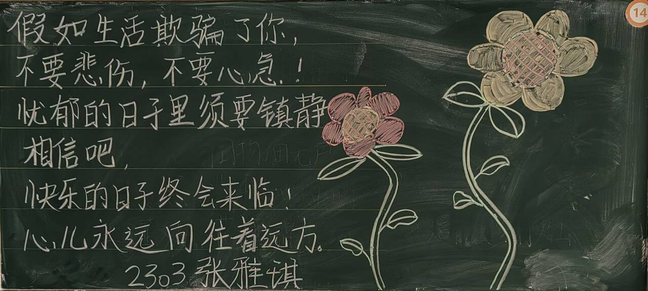 假如生活欺骗了你，
不要悲伤，不要心急！
忧郁的日子里须要镇静
相信吧，
快乐的日子终会来临！
心儿永远向往着远方。
2303 张雅琪
14